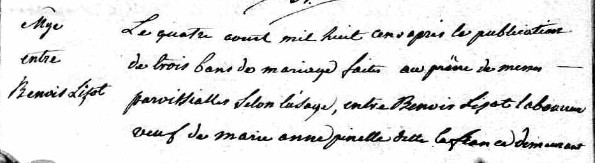 Mge
entre
Benois Lizot
Le quatre aout mil huit cens apres la publication
de trois bans de mariage faites au prône de messes
paroissialles selon l'usage, entre Benois Lizot laboureur
veuf de marie anne pinelle ditte la france demeurant